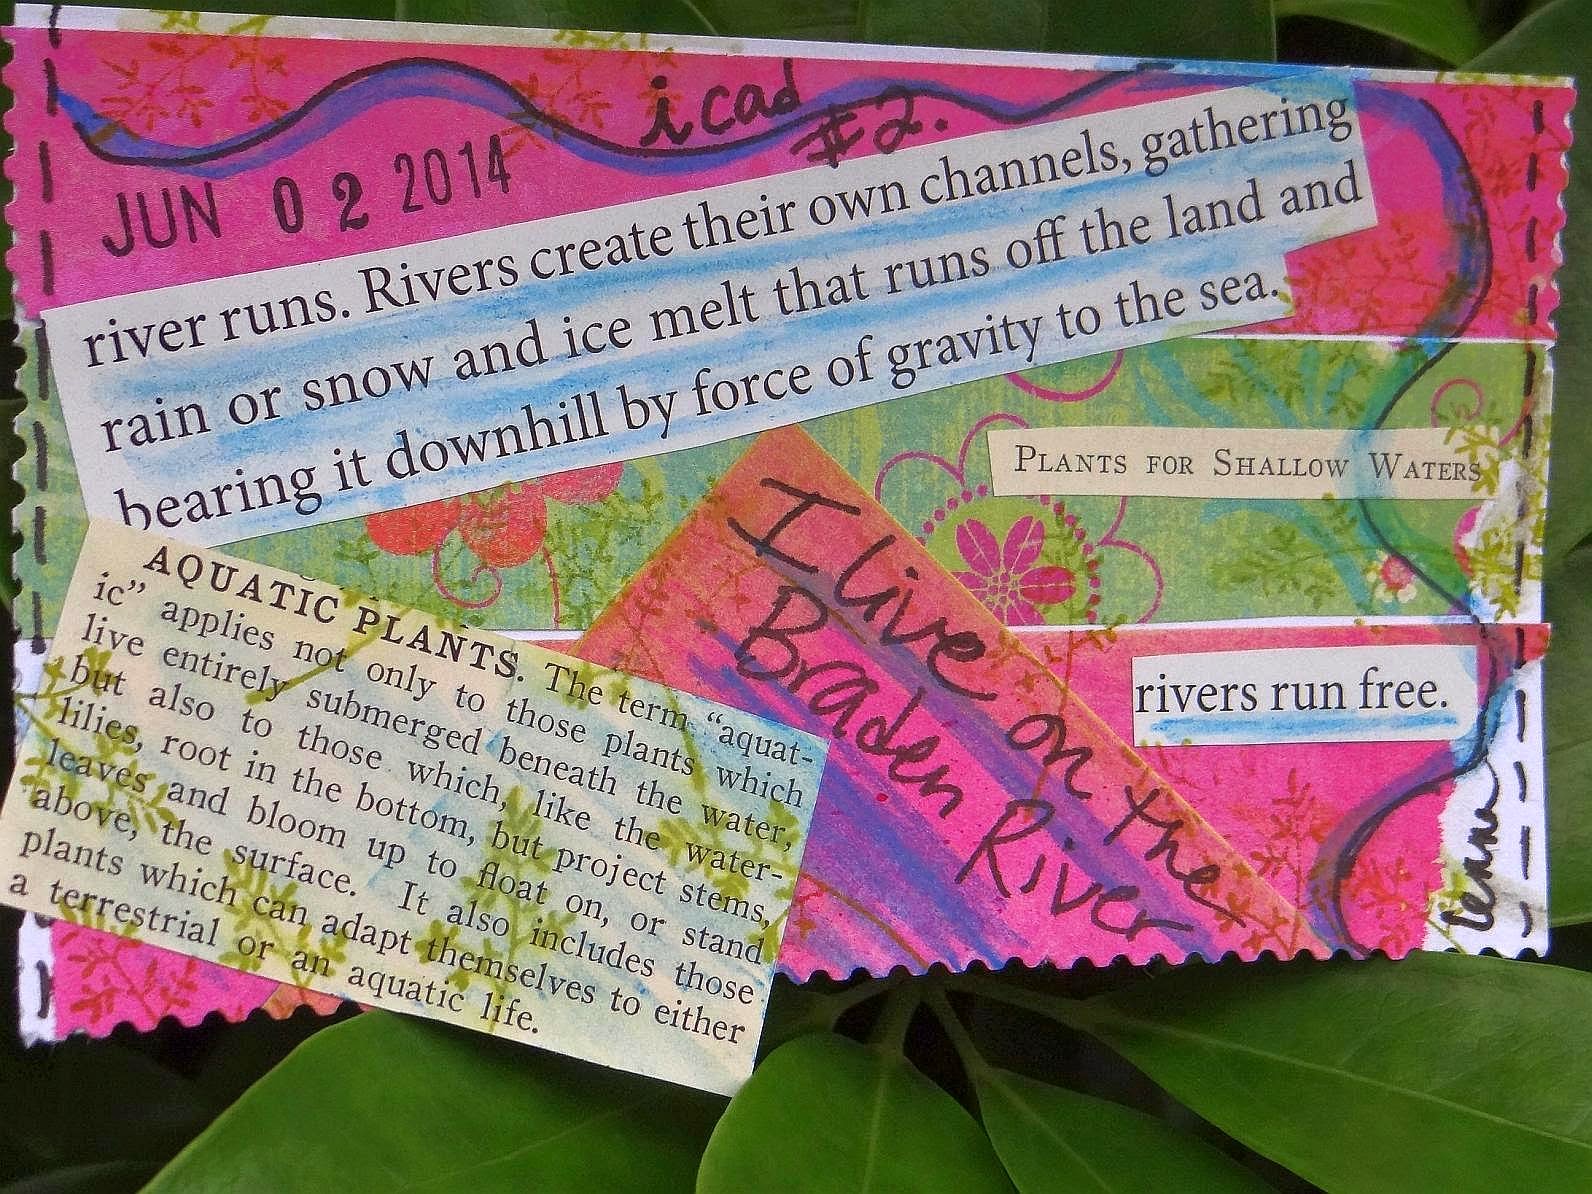 i cad
#2.
JUN 02 2014
river runs. Rivers create their own channels, gathering
rain or snow and ice melt that runs off the land and
bearing it downhill by force of gravity to the sea.
PLANTS FOR SHALLOW WATERS
AQUATIC PLANTS. The term “aquat-
ic” applies not only to those plants which
live entirely submerged beneath the water,
but also to those which, like the water-
lilies, root in the bottom, but project stems,
leaves and bloom up to float on, or stand
above, the surface. It also includes those
plants which can adapt themselves to either
a terrestrial or an aquatic life.
I live on the
Braden River
rivers run free.